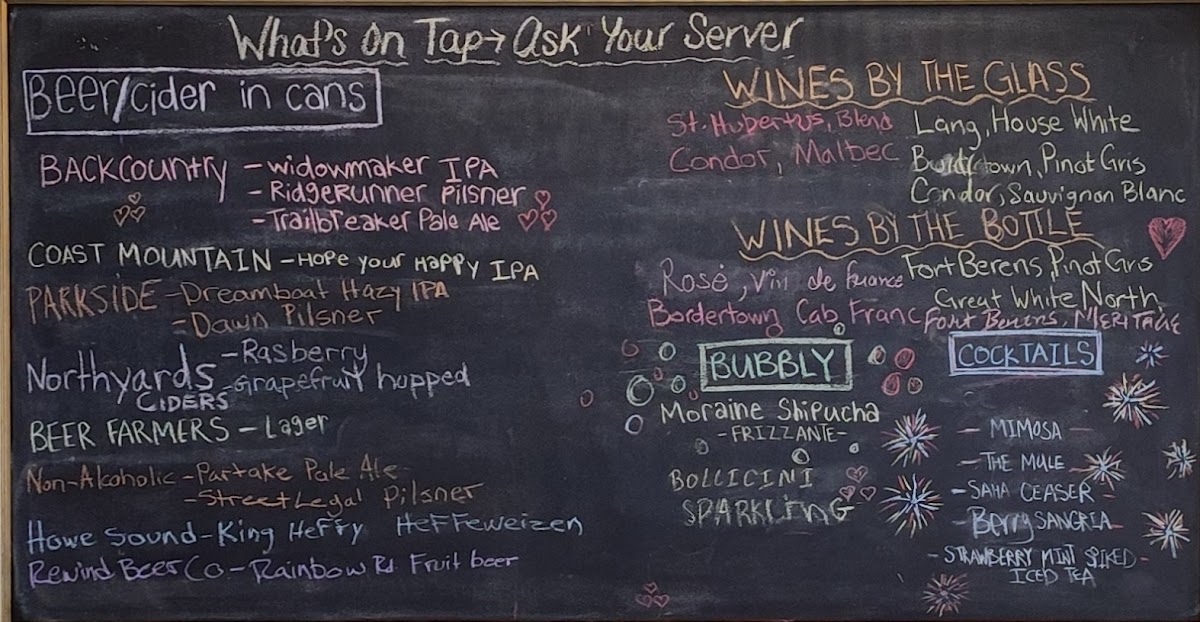 What's On Tap→Ask Your Server
Beer/cider in cans
BACKCOUNTRY -widowmaker IPA
-RidgeRunner Pilsner
-Trailbreaker Pale Ale
COAST MOUNTAIN -Hope your Happy IPA
PARKSIDE -Dreamboat Hazy IPA
-Dawn Pilsner
Northyards CIDERS -Rasberry
-Grapefruit hopped
BEER FARMERS - Lager
Non-Alcoholic -Partake Pale Ale
-Street Legal Pilsner
Howe Sound -King Heffy Heffeweizen
Rewind Beer Co -Rainbow Rd Fruit beer
WINES BY THE GLASS
St. Hubertus, Blend
Condor, Malbec
Lang, House White
Bordertown, Pinot Gris
Condor, Sauvignon Blanc
WINES BY THE BOTTLE
Rosé, Vin de france
Bordertown Cab Franc
Fort Berens, Pinot Gris
Great White North
Fort Berens, MERITAGE
BUBBLY
Moraine Shipucha
-FRIZZANTE-
BOLLICINI
SPARKLING
COCKTAILS
- MIMOSA
- THE MULE -
- SAHA CEASER -
- Berry SANGRIA
- STRAWBERRY MINT SPIKED -
ICED TEA